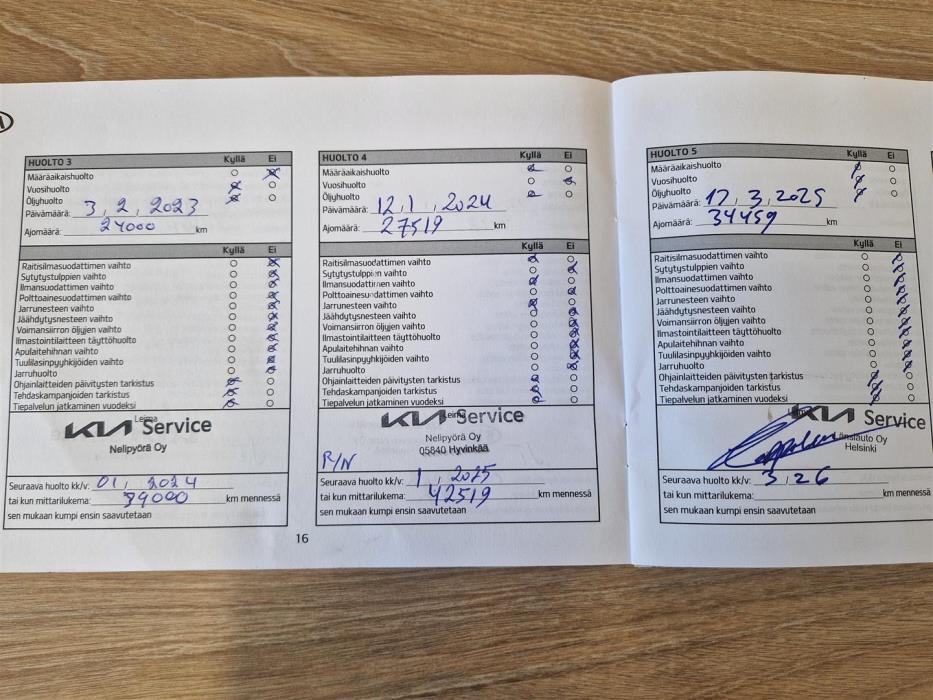 HUOLTO 3 Kyllä Ei
Määräaikaishuolto
Vuosihuolto
Öljyhuolto
Päivämäärä: 3, 2, 2023
Ajomäärä: 24000 km
Kyllä Ei
Raitisilmasuodattimen vaihto
Sytytystulppien vaihto
Ilmansuodattimen vaihto
Polttoainesuodattimen vaihto
Jarrunesteen vaihto
Jäähdytysnesteen vaihto
Voimansiirron öljyjen vaihto
Ilmastointilaitteen täyttöhuolto
Apulaitehihnan vaihto
Tuulilasinpyyhkijöiden vaihto
Jarruhuolto
Ohjainlaitteiden päivitysten tarkistus
Tehdaskampanjoiden tarkistus
Tiepalvelun jatkaminen vuodeksi
Leima
KIA Service
Nelipyörä Oy
Seuraava huolto kk/v: 01, 2024
tai kun mittarilukema: 39000 km mennessä
sen mukaan kumpi ensin saavutetaan
HUOLTO 4 Kyllä Ei
Määräaikaishuolto
Vuosihuolto
Öljyhuolto
Päivämäärä: 12, 1, 2024
Ajomäärä: 27519 km
Kyllä Ei
Raitisilmasuodattimen vaihto
Sytytystulppien vaihto
Ilmansuodattimen vaihto
Polttoainesuodattimen vaihto
Jarrunesteen vaihto
Jäähdytysnesteen vaihto
Voimansiirron öljyjen vaihto
Ilmastointilaitteen täyttöhuolto
Apulaitehihnan vaihto
Tuulilasinpyyhkijöiden vaihto
Jarruhuolto
Ohjainlaitteiden päivitysten tarkistus
Tehdaskampanjoiden tarkistus
Tiepalvelun jatkaminen vuodeksi
Leima
KIA Service
Nelipyörä Oy
05840 Hyvinkää
R/N
Seuraava huolto kk/v: 1, 2025
tai kun mittarilukema: 42519 km mennessä
sen mukaan kumpi ensin saavutetaan
16
HUOLTO 5 Kyllä Ei
Määräaikaishuolto
Vuosihuolto
Öljyhuolto
Päivämäärä: 17, 3, 2025
Ajomäärä: 34459 km
Kyllä Ei
Raitisilmasuodattimen vaihto
Sytytystulppien vaihto
Ilmansuodattimen vaihto
Polttoainesuodattimen vaihto
Jarrunesteen vaihto
Jäähdytysnesteen vaihto
Voimansiirron öljyjen vaihto
Ilmastointilaitteen täyttöhuolto
Apulaitehihnan vaihto
Tuulilasinpyyhkijöiden vaihto
Jarruhuolto
Ohjainlaitteiden päivitysten tarkistus
Tehdaskampanjoiden tarkistus
Tiepalvelun jatkaminen vuodeksi
KIA Service
Länsiauto Oy
Helsinki
Seuraava huolto kk/v: 3, 26
tai kun mittarilukema: km mennessä
sen mukaan kumpi ensin saavutetaan